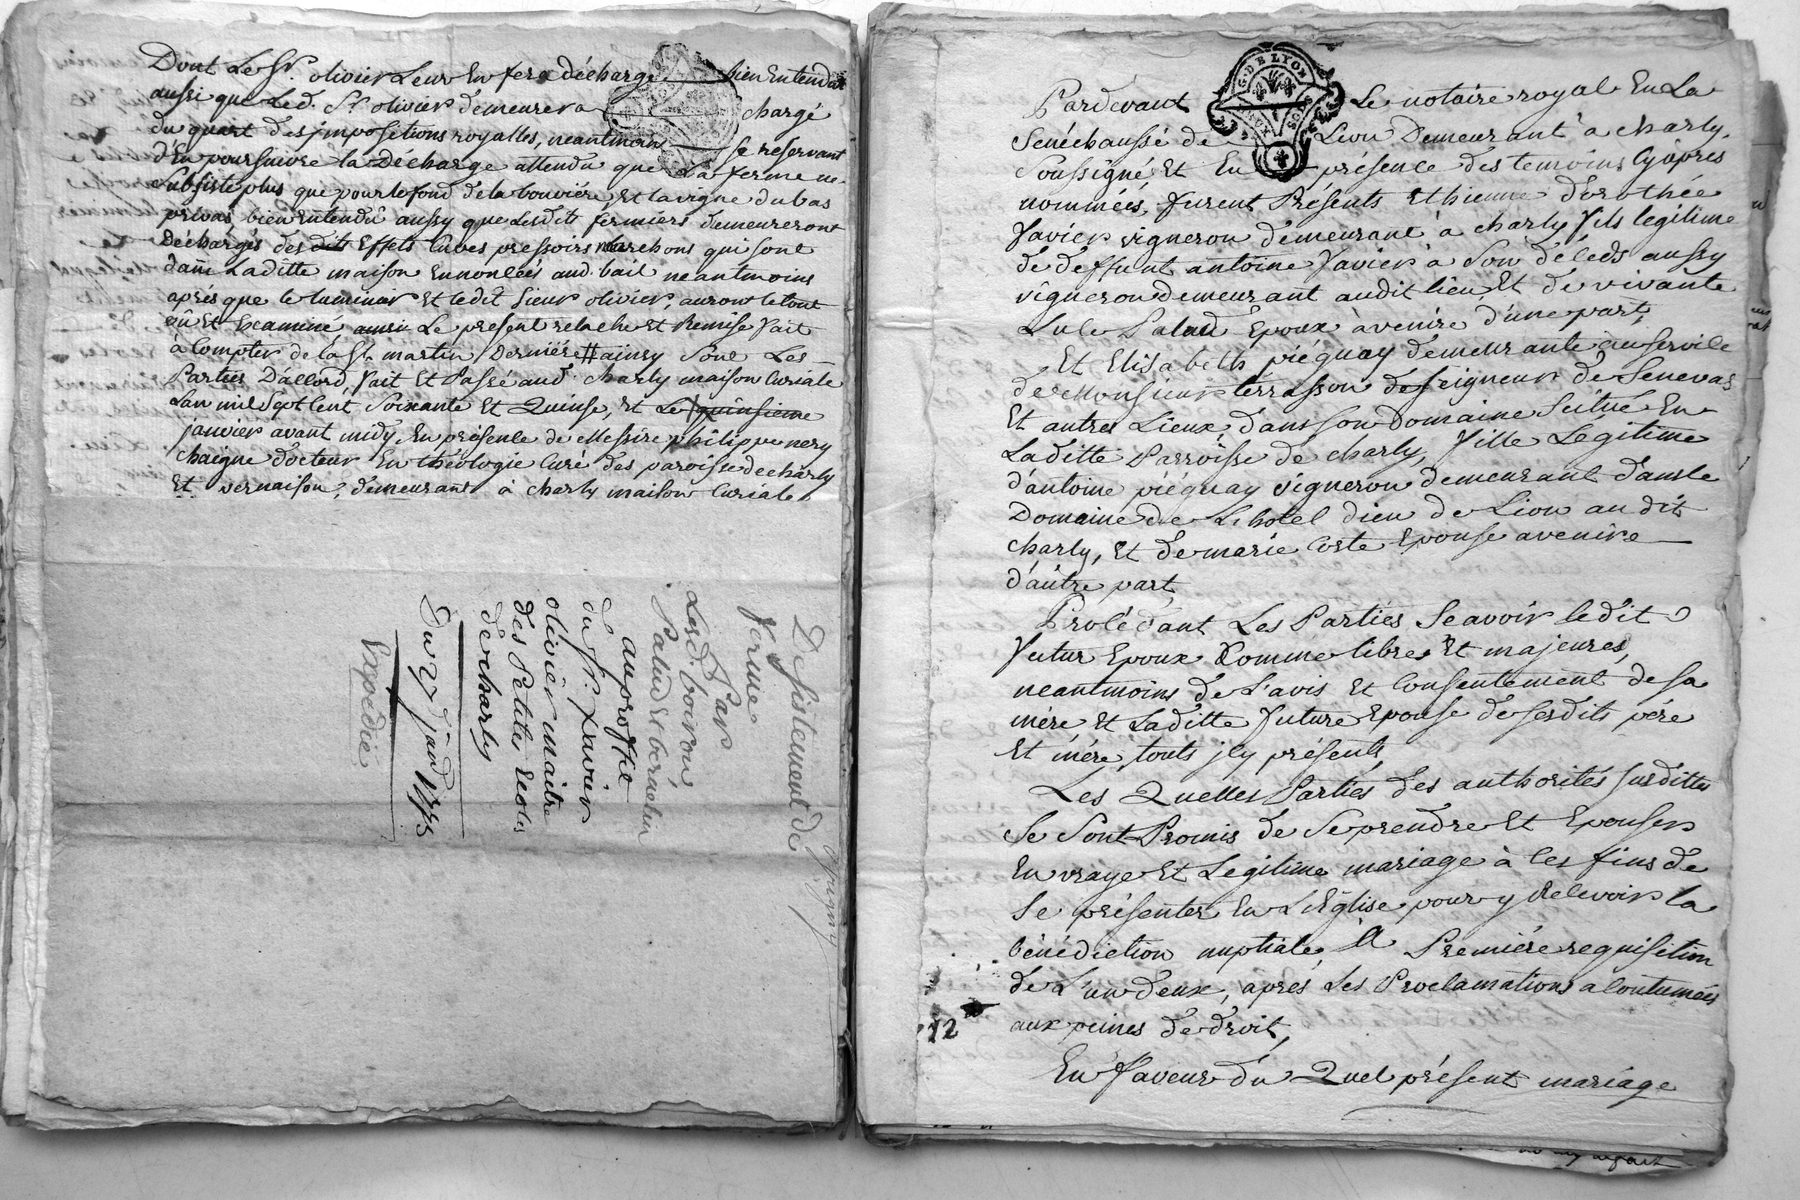 Dont Le Sr. olivier Leur En fera décharge bien Entendu
aussi que Led. Sr olivier demeurera chargé
du quart des jmpositions royalles, neantmoins se reservant
d'En poursuivre la Décharge attendu que La ferme ne
subsiste plus que pour le fond de la bouviére, et la vigne du bas
privas bien Entendu aussy que Lesdit fermiers demeureront
Déchargés des dits Effets Cuves pressoirs qui sont
dans Laditte maison Ennoncées aud. bail neantmoins
aprés que le luminier Et ledit sieur olivier, auront le tout
vû Et Examiné Le present relache Et Remise fait
à Compter de la St. martin derniére # ainsy sont Les
Parties D'accord, fait Et Passé aud. charly maison Curiale
Lan mil Sept Cent Soixante Et Quinse, Et Le quinsieme
janvier avant midy En présence de Messire philippe nery
chaigne docteur En théologie Curé des paroisse de charly
Et vernaison, demeurant à charly maison Curiale
Desistement de
ferme
Par
Lesd. boiron
Palud Et
au proffit
du Sr. Xavier
olivier maitre
des Petite Ecoles
de charly
Du 27 janv 1775
Expédié
G. DE LYON
Pardevant Le notaire royal En La
Senéchaussé de Lion Demeurant à charly.
Soussigné Et En présence des temoins Cy après
nommées, furent Présents Ethienne dorothée
Javier vigneron demeurant à charly fils legitime
de deffunt antoine Javier à Son décéds aussy
vigneron demeurant audit lieu Et de vivante
Lucle Palud Epoux àvenire d'une part,
Et Elisabeth piéguay demeurante au service
de Monsieur terrasson de seigneur de Senevas
Et autres Lieux dans son Domaine Scitué En
Laditte Parroisse de charly, fille Legitime
d'antoine piéguay vigneron demeurant dans le
Domaine de Lhotel dieu de Lion audit
charly, Et de marie Coste Epouse avenire
d'autre part,
Procédant Les Parties Scavoir ledit
futur Epoux Comme libre Et majeures,
neantmoins de L'avis Et Consentement de sa
mére Et Laditte future Epouse de sesdits pére
Et mére, touts jcy présents,
Les Quelles Parties des authorités susdittes
Se Sont Promis de Se prendre Et Epouser
En vraye Et Legitime mariage à Ces fins de
Se présenter En L'Eglise pour y Recevoir la
bénédiction nuptiale, A Premiére requisition
de L'un deux, aprés Les Proclamations acoutumées
aux peines de droit,
12
En faveur du Quel présent mariage